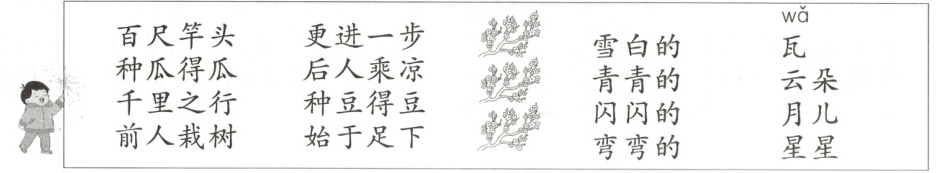 百尺竿头 更进一步
种瓜得瓜 后人乘凉
千里之行 种豆得豆
前人栽树 始于足下
wǎ
雪白的 瓦
青青的 云朵
闪闪的 月儿
弯弯的 星星